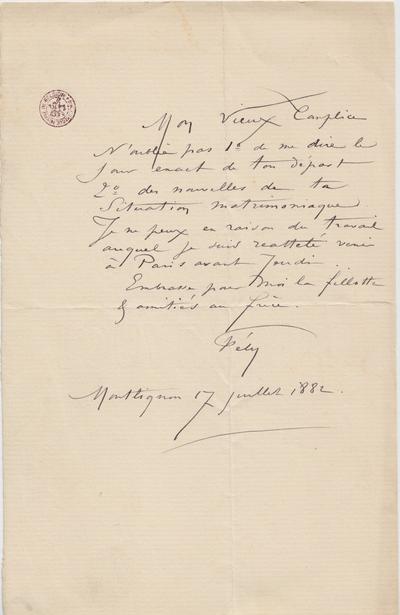 Mon Vieux Complice
N'oublie pas 1º de me dire le
jour exact de ton départ
2º des nouvelles de ta
Situation matrimoniaque.
Je ne peux en raison du travail
auquel je suis reattelé venir
à Paris avant Jeudi.
Embrasse pour moi la fillotte
& amitiés au frère.
Montlignon 17 juillet 1882.